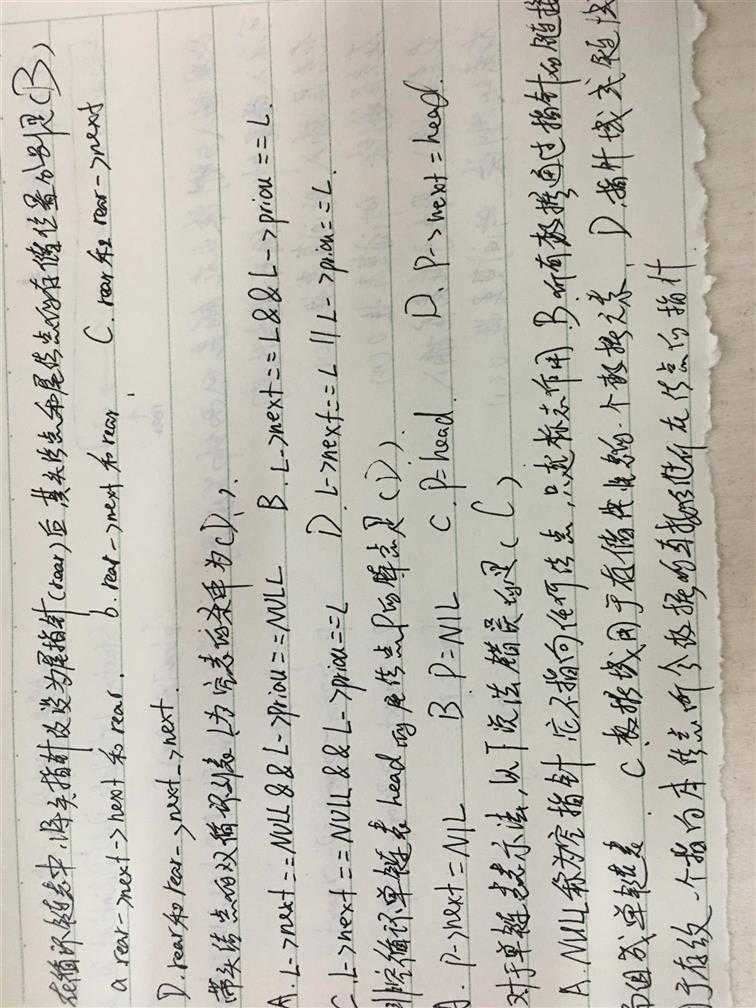 在循环链表中,将头指针改设为尾指针(rear)后,其头结点和尾结点的存储位置分别是(B)
a. rear->next->next和rear. b. rear->next和rear. C. rear和rear->next
D. rear和rear->next->next.
带头结点的双循环列表L为空表的条件为(D).
A. L->next==NULL&&L->priou==NULL B. L->next==L&&L->priou==L.
C. L->next==NULL&&L->priou==L D. L->next==L||L->priou==L.
非空循环单链表head的尾结点P的特点是(D).
A. P->next=NIL B. P=NIL C. P=head. D. P->next=head.
对于单链表表示法,以下说法错误的是(C)
A. NULL称为空指针,它不指向任何结点,只起标志作用 B. 所有数据通过指针的链接
组成单链表 C. 数据域用于存储线性表的一个数据元素 D. 指针域或链域
于存放一个指向本结点所含数据的直接后继所在结点的指针